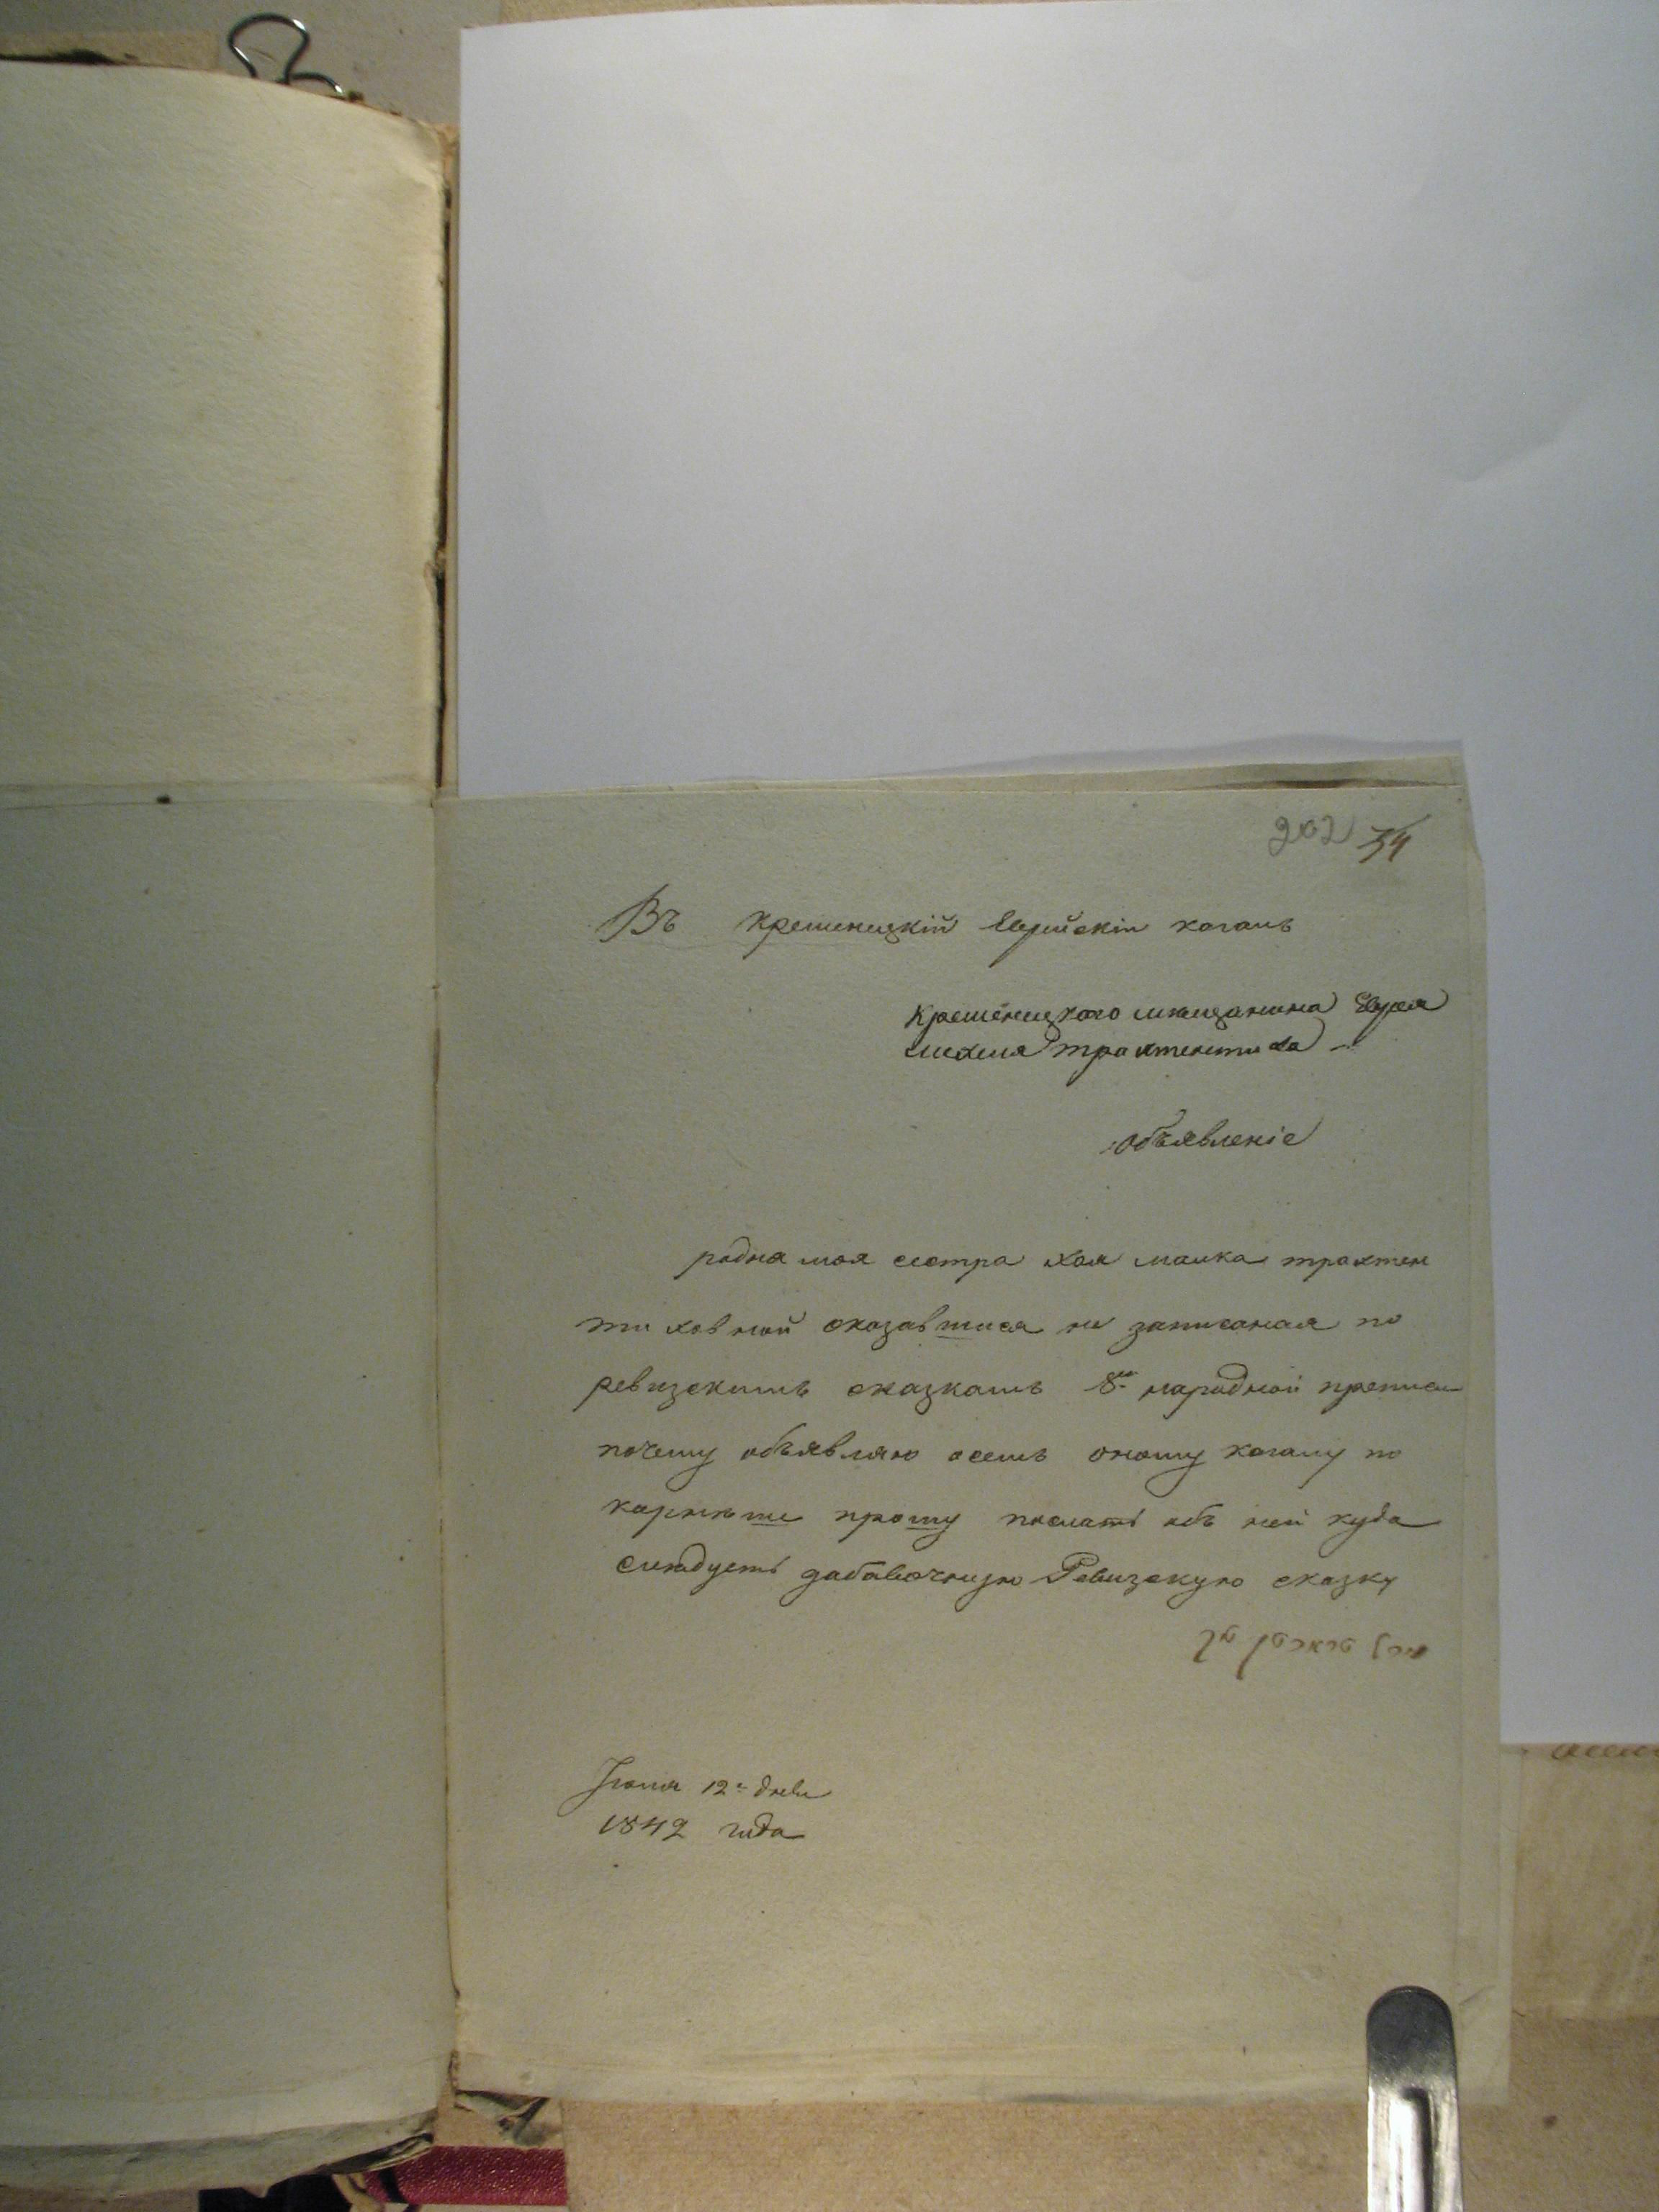 202 34
Въ кремениcкій Еврейскій кагалъ
Кременецкого мещанина Еврея
трахтентиха
объявленіе
родна моя сестра Хая малка трахтен
тиховной оказавшися не записаная по
ревизскимъ сказкамъ 8й народной преписи
почему объявляю осемъ оному кагалу по
корнѣше прошу послать объ ней куда
следуетъ дабавочную Ревизскую сказку
Іюня 12го дня
1842 года